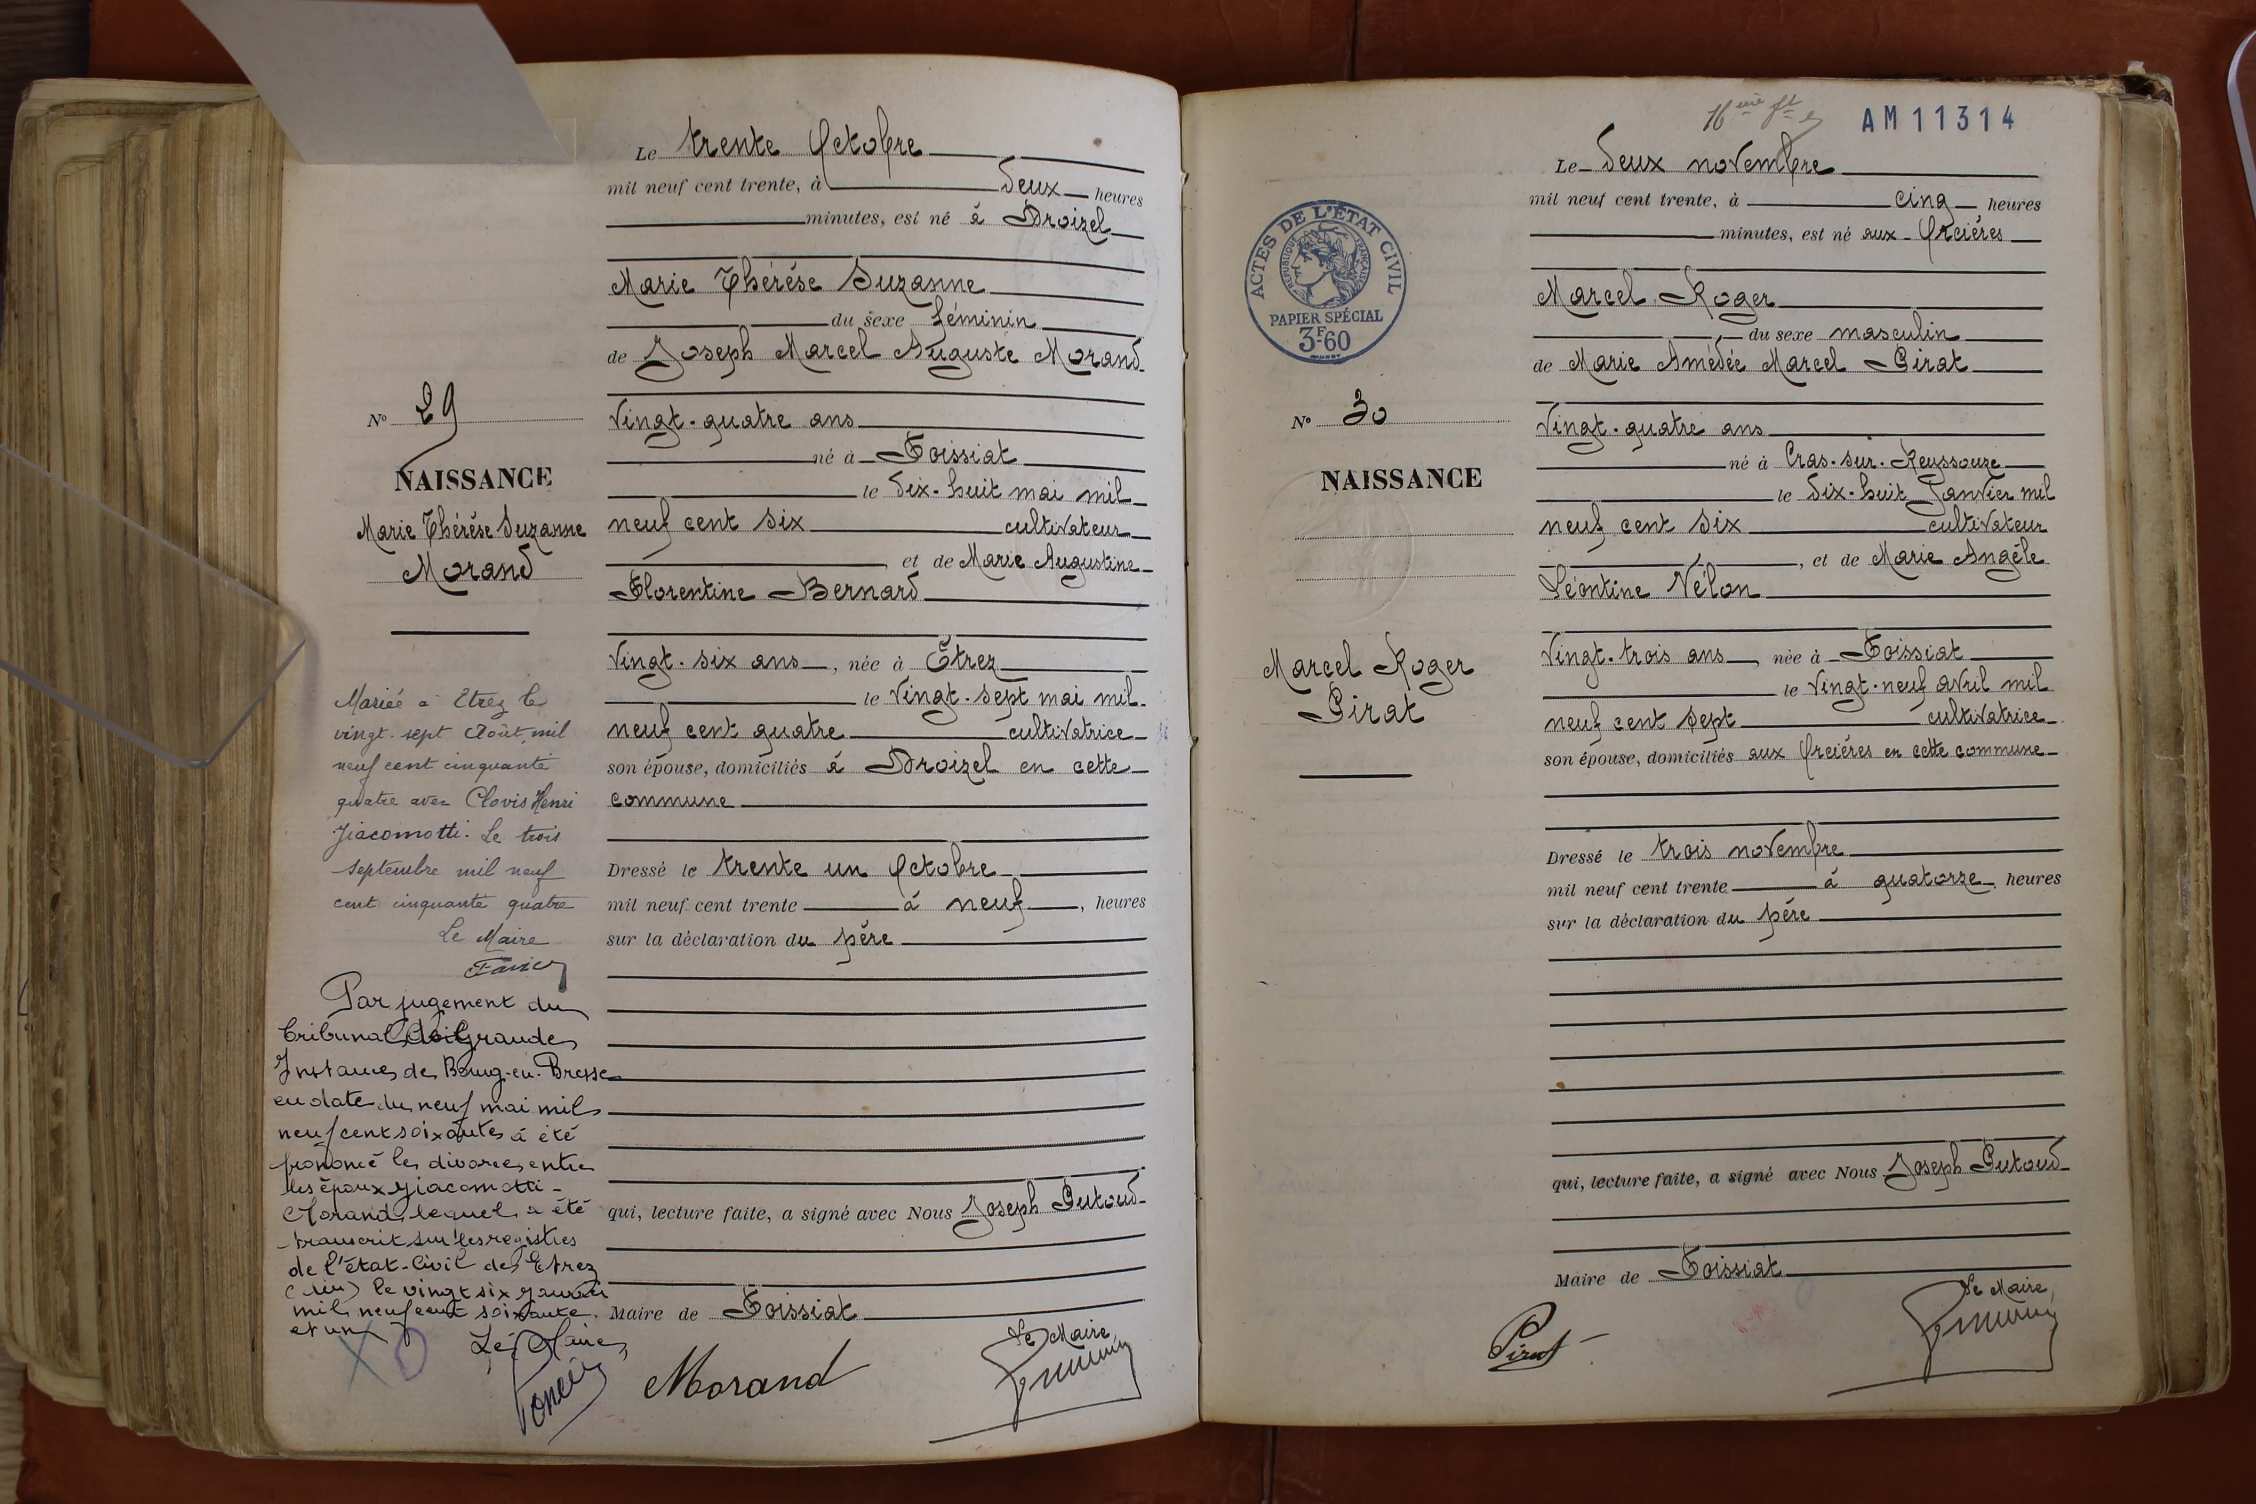 Le trente Octobre
mil neuf cent trente, à deux heures
minutes, est né à Broizel
Marie Thérèse Suzanne
du sexe féminin
de Joseph Marcel Auguste Morand
N° 29
vingt-quatre ans
né à Foissiat
NAISSANCE
le dix-huit mai mil
Marie Thérèse Suzanne
Morand
neuf cent six cultivateur
et de Marie Augustine
Florentine Bernard
vingt-six ans, née à Étrez
le vingt-sept mai mil
neuf cent quatre cultivatrice
son épouse, domiciliés à Broizel en cette
commune
Dressé le trente un Octobre
mil neuf cent trente à neuf, heures
sur la déclaration du père
qui, lecture faite, a signé avec Nous Joseph Putoud
Maire de Foissiat
Le Maire
Morand
Mariée à Etrez le
vingt-sept Août mil
neuf cent cinquante
quatre avec Clovis Henri
Giacomotti. Le trois
septembre mil neuf
cent cinquante quatre
Le Maire
Par jugement du
tribunal de Grande
Instance de Bourg-en-Bresse
en date du neuf mai mil
neuf cent soixante a été
prononcé le divorce entre
les époux Giacomotti -
Morand, lequel a été
transcrit sur les registres
de l'état-Civil de Etrez
(Ain) le vingt six janvier
mil neuf cent soixante
et un
Le Maire
16ème ft
AM11314
Le deux novembre
mil neuf cent trente, à cinq heures
minutes, est né aux Orcières
ACTES DE L'ÉTAT CIVIL
RÉPUBLIQUE FRANÇAISE
PAPIER SPÉCIAL
3F60
Marcel Roger
du sexe masculin
de Marie Amédée Marcel Pirat
N° 30
vingt-quatre ans
né à Cras-sur-Reyssouze
NAISSANCE
le dix-huit Janvier mil
neuf cent six cultivateur
, et de Marie Angèle
Léontine Vélon
Marcel Roger
Pirat
vingt-trois ans, née à Foissiat
le vingt-neuf avril mil
neuf cent sept cultivatrice
son épouse, domiciliés aux Orcières en cette commune
Dressé le trois novembre
mil neuf cent trente à quatorze heures
sur la déclaration du père
qui, lecture faite, a signé avec Nous Joseph Putoud
Maire de Foissiat
Le Maire,
Pirat